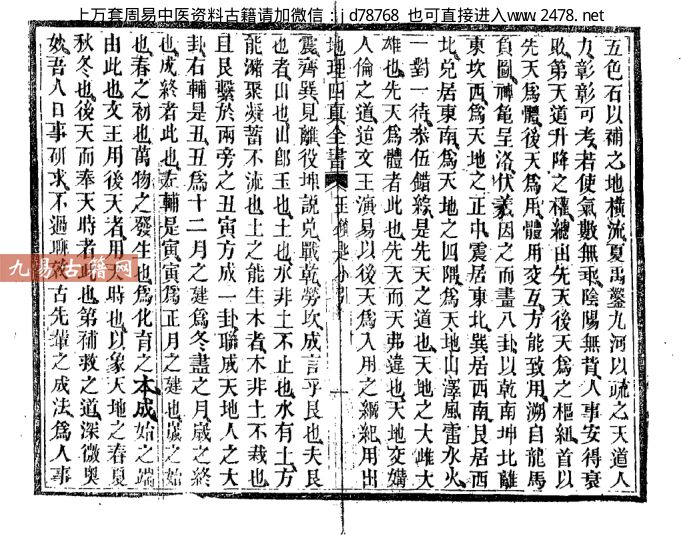 上万套周易中医资料古籍请加微信：jd78768 也可直接进入www 2478. net
五色石以補之地橫流夏禹鑿九河以疏之天道人
力彰彰可考若使氣數無乖陰陽無背人事安得衰
敗第天道升降之權總由先天後天爲之樞紐首以
先天爲體後天爲用體用交互方能致用溯自龍馬
負圖神龜呈洛伏羲因之而畫八卦以乾南坤北離
東坎西爲天地之正中震居東北巽居西南艮居西
北兌居東南爲天地之四隅爲天地山澤風雷水火
一對一待叅伍錯綜是先天之道也天地之大雌大
雄也先天爲體者此也先天而天弗違也天地交媾
人倫之道迨文王演易以後天爲入用之綱紀用出
地理四眞全書
玉 小引
一
震齊巽見離役坤說兌戰乾勞坎成言乎艮也夫艮
也者山也山卽玉也土也水非土不止也水有土方
能瀦聚凝蓄不流也土之能生木者木非土不栽也
且艮繫於兩旁之丑寅方成一卦聯成天地人之大
卦右輔是丑丑爲十二月之建爲冬盡之月歲之終
也成終者此也左輔是寅寅爲正月之建也歲之始
也春之初也萬物之發生也爲化育之本成始之端
由此也文王用後天者用天時也以象天地之春夏
秋冬也後天而奉天時者 也第補救之道深微奧
妙吾人日事研求不過聊效古先輩之成法爲人事
九易古籍网